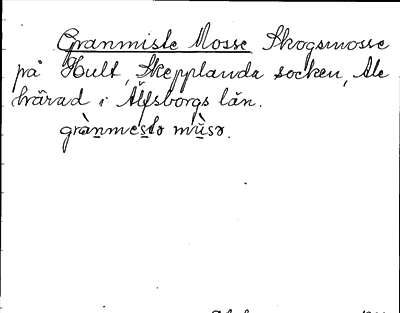 Granmisle Mosse Skogsmosse
på Hult, Skepplanda socken, Ale
härad i Älfsborgs län.
grànmeslə mùsə.